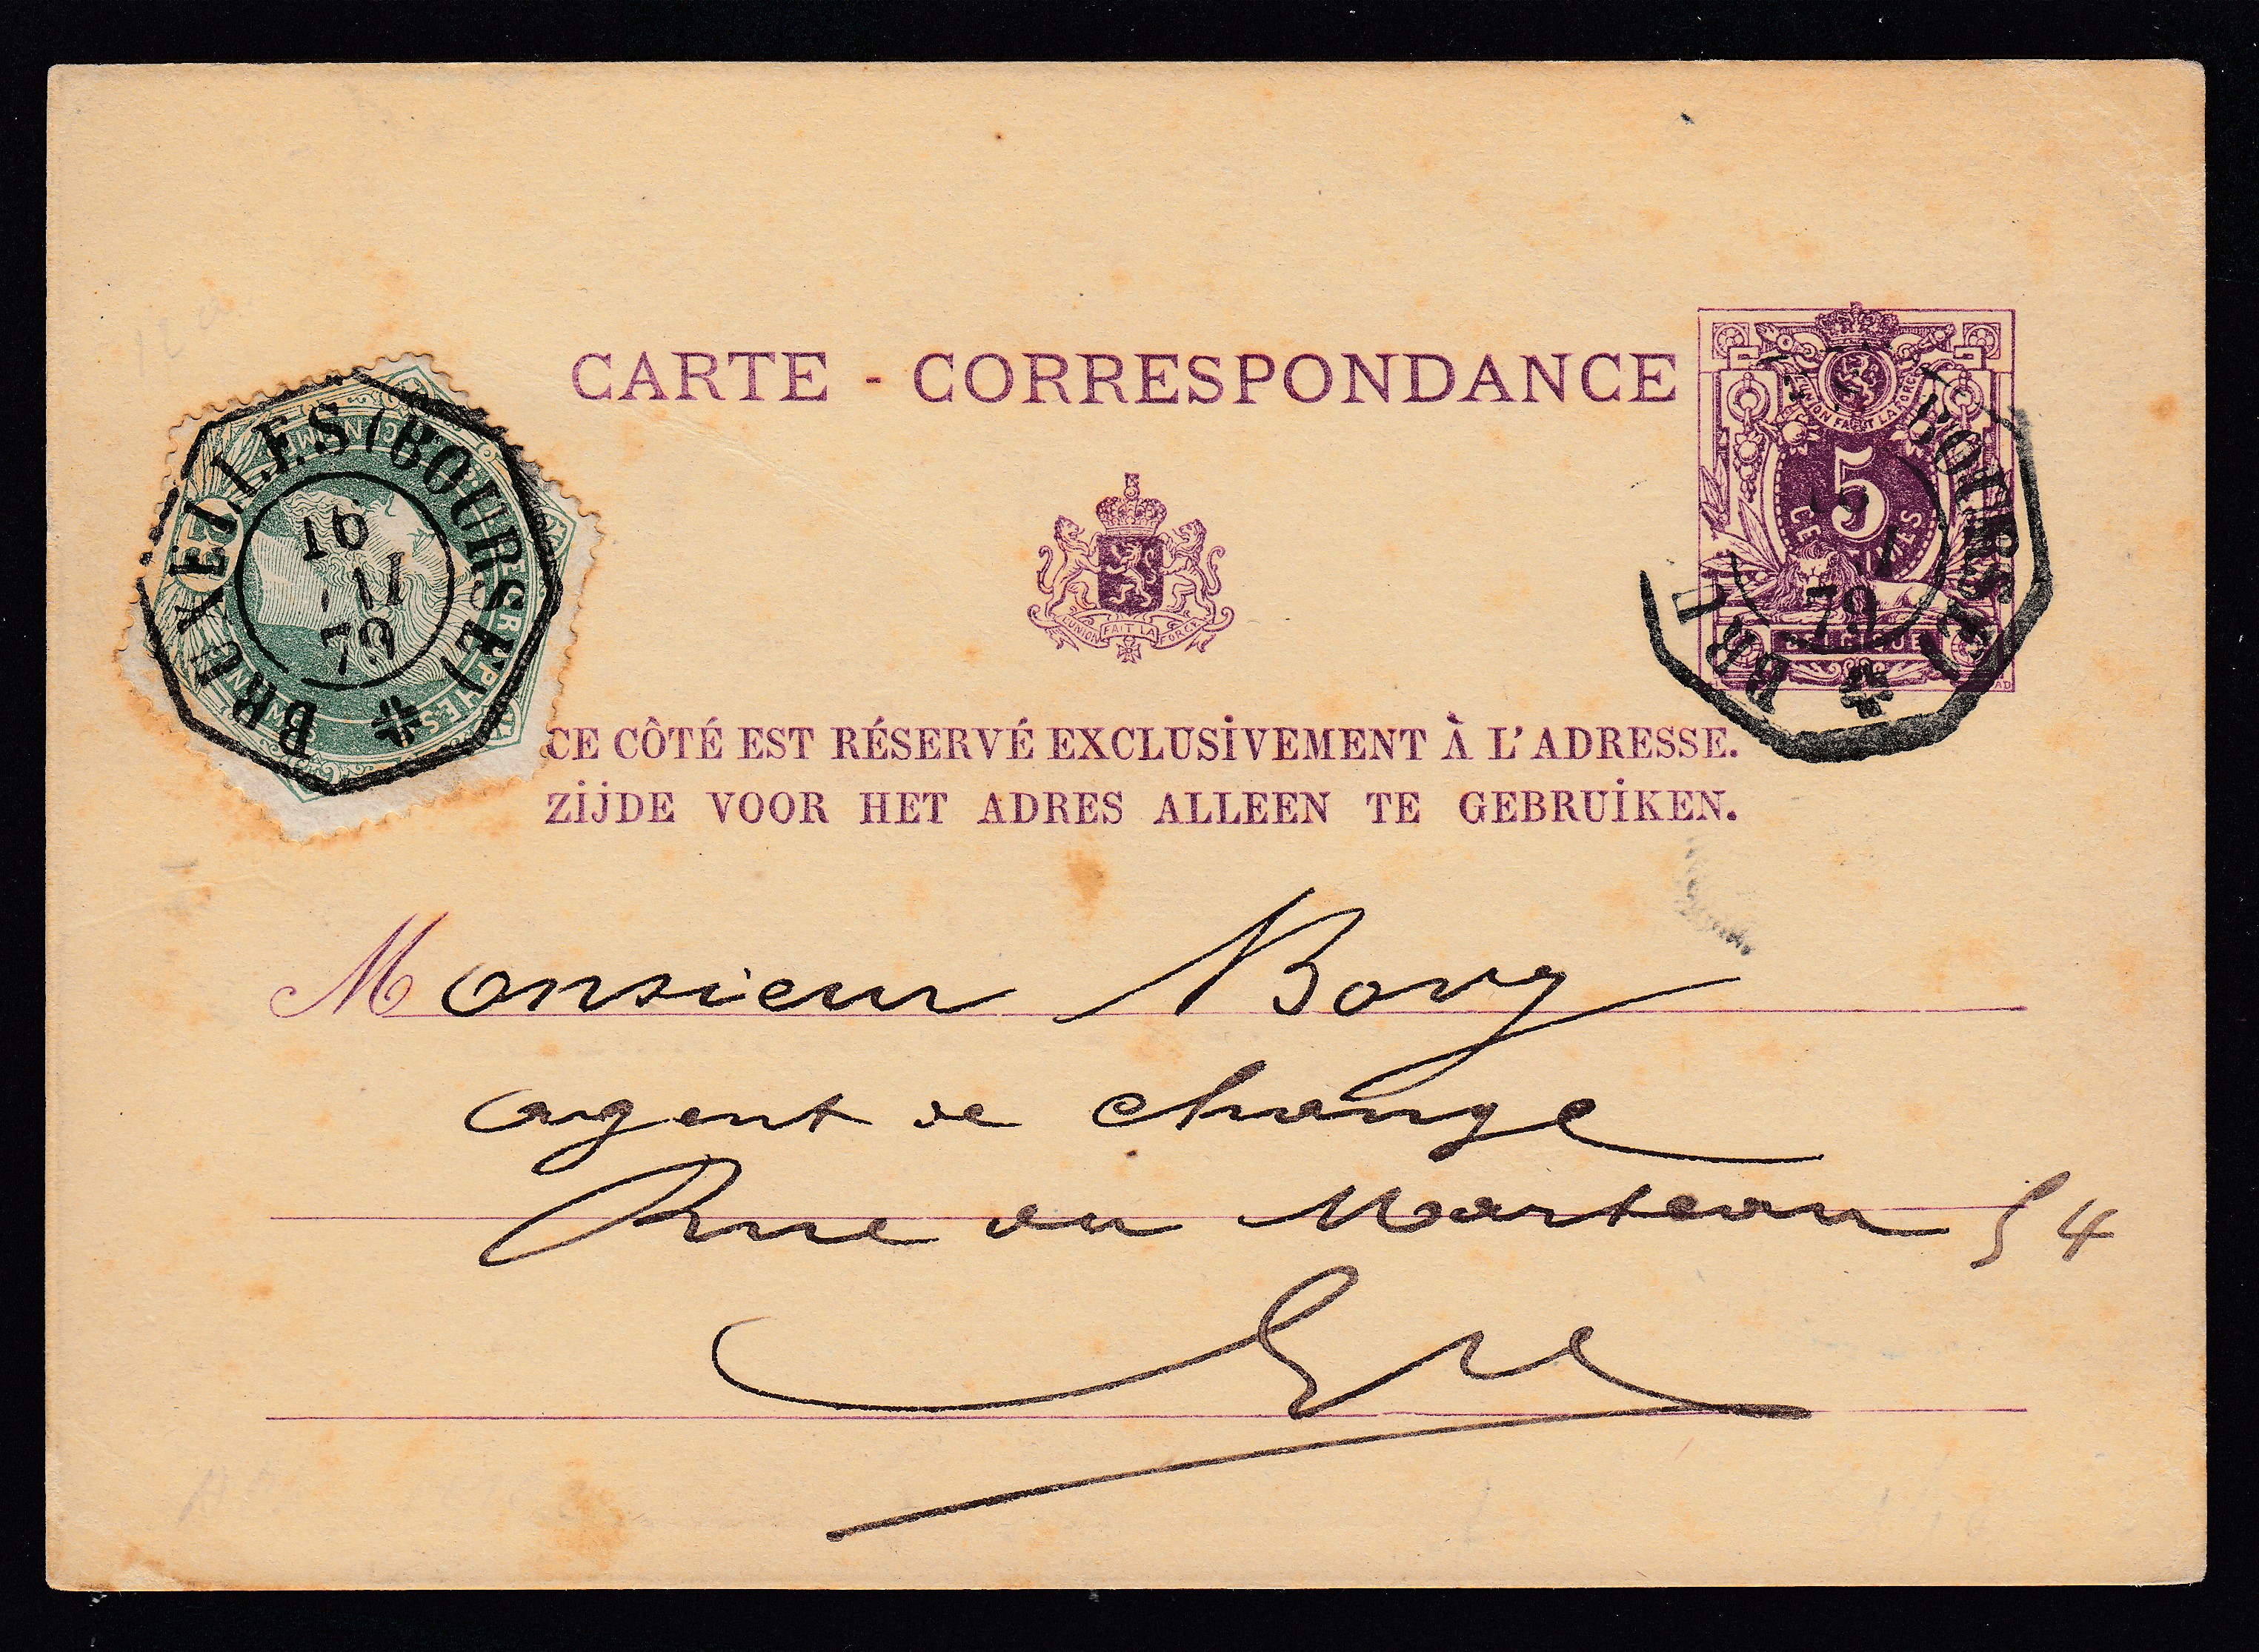 CARTE - CORRESPONDANCE
BRUXELLES (BOURSE)
16
79
5
CENTIMES
BELGIQUE
L'UNION FAIT LA FORCE
BOURSE
BR
79
L'UNION FAIT LA FORCE
CE CÔTÉ EST RÉSERVÉ EXCLUSIVEMENT À L'ADRESSE.
ZIJDE VOOR HET ADRES ALLEEN TE GEBRUIKEN.
Monsieur Bovy
agent de change
Rue du Marteau 54